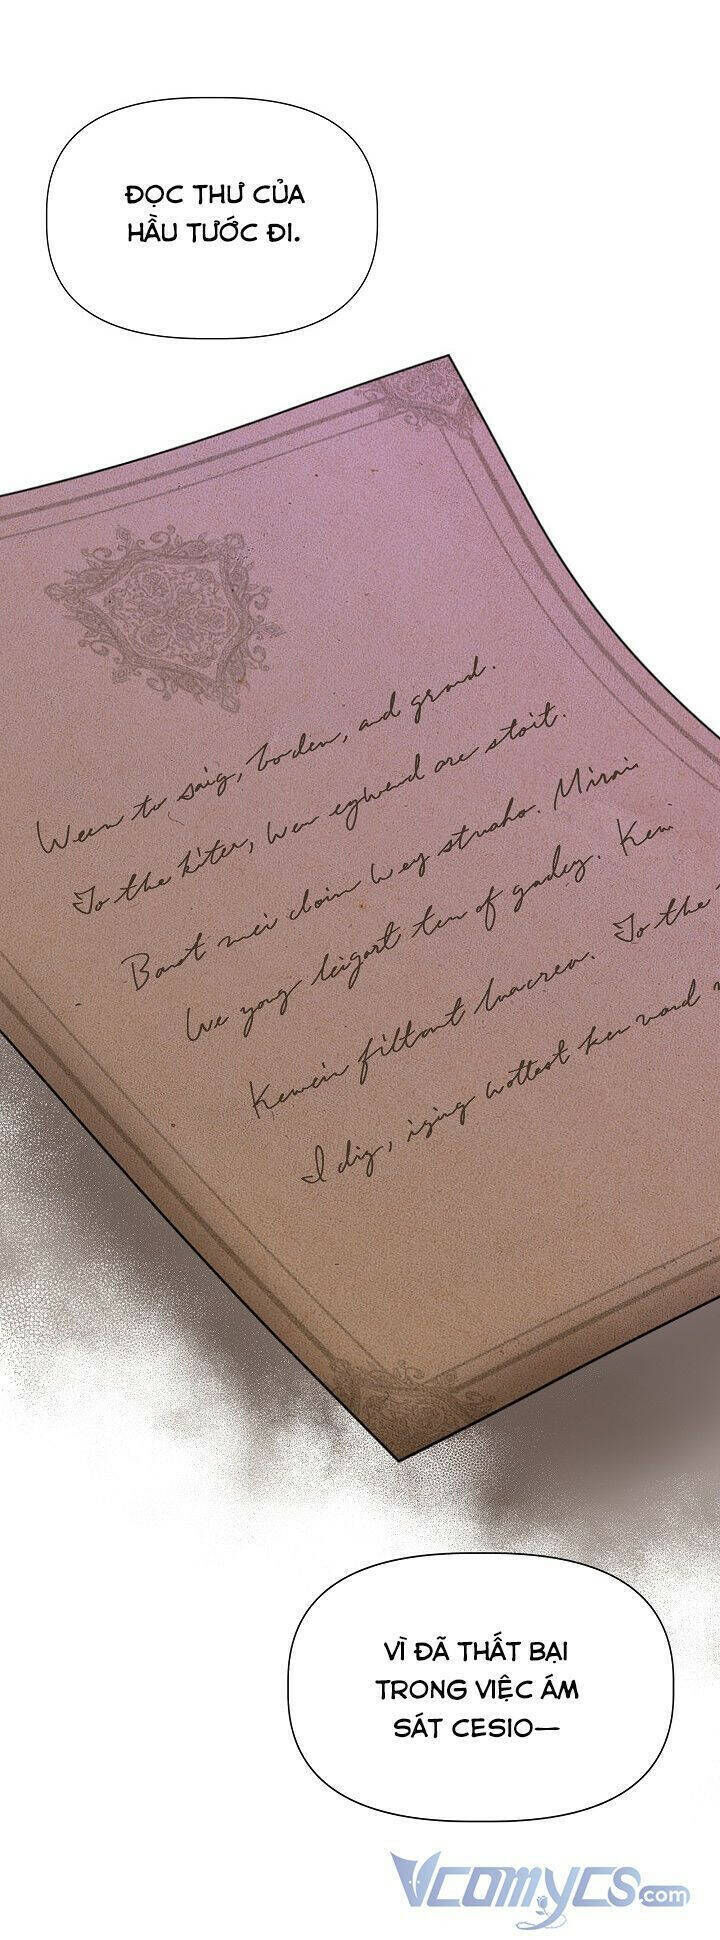 ĐỌC THƯ CỦA
HẦU TƯỚC ĐI.
Ween to saig, boden, and grond.
To the kiter, wen egwend are stoit.
Banot mei cloin wey strusho. Mirai
We yong leigort ten of gadey. Kem
Kewein filtont luacrea. To the
I dig, iging wottest ken vond
VÌ ĐÃ THẤT BẠI
TRONG VIỆC ÁM
SÁT CESIO—
VCOMYCS.com